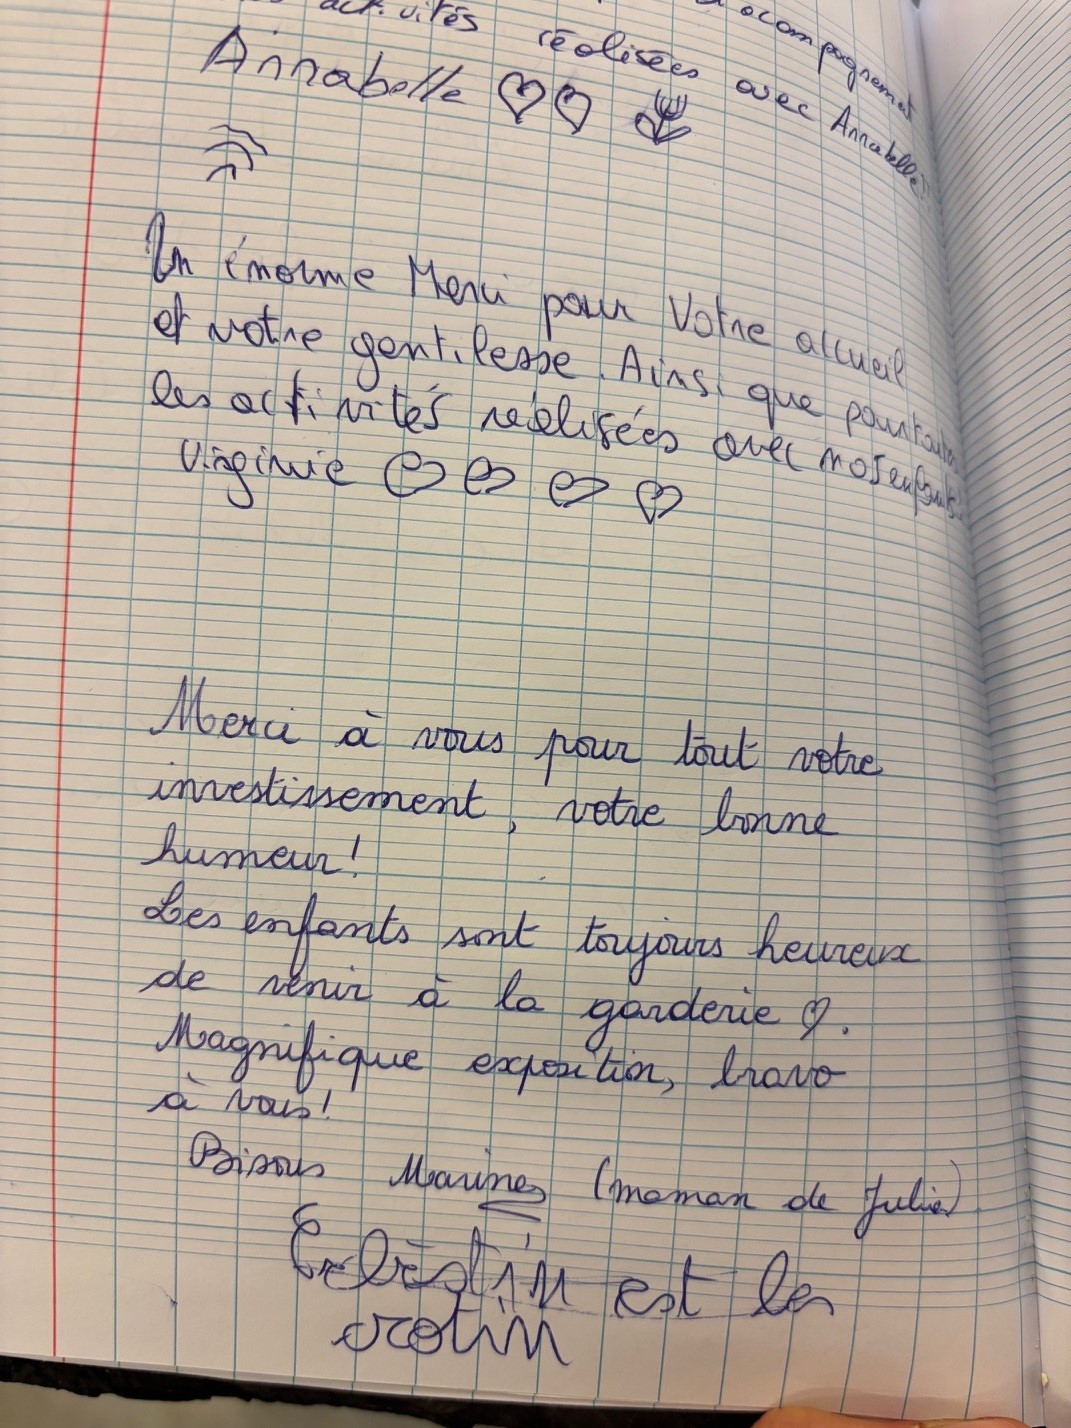 activités réalisées avec Annabelle
acompagnement
Annabelle
Un énorme Merci pour Votre accueil
et votre gentilesse. Ainsi que pour toutes
les activités réalisées avec nos enfants.
Virginie
Merci à vous pour tout votre
investissement, votre bonne
humeur!
Les enfants sont toujours heureux
de venir à la garderie ♡.
Magnifique exposition, bravo
à vous!
Bisous Marine (maman de Julie)
est